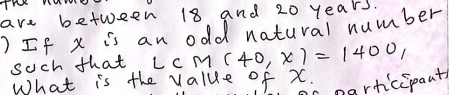 are between 18 and 20 years.
) If x is an odd natural number
such that LCM (40, x) = 1400,
What is the value of x.
participants